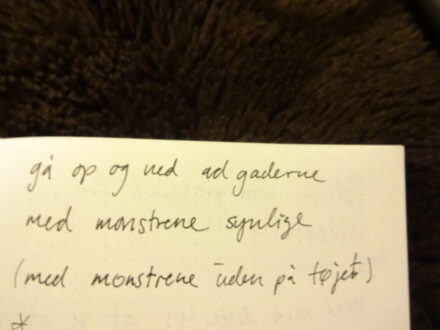 gå op og ned ad gaderne
med monstrene synlige
(med monstrene uden på tøjet)
*